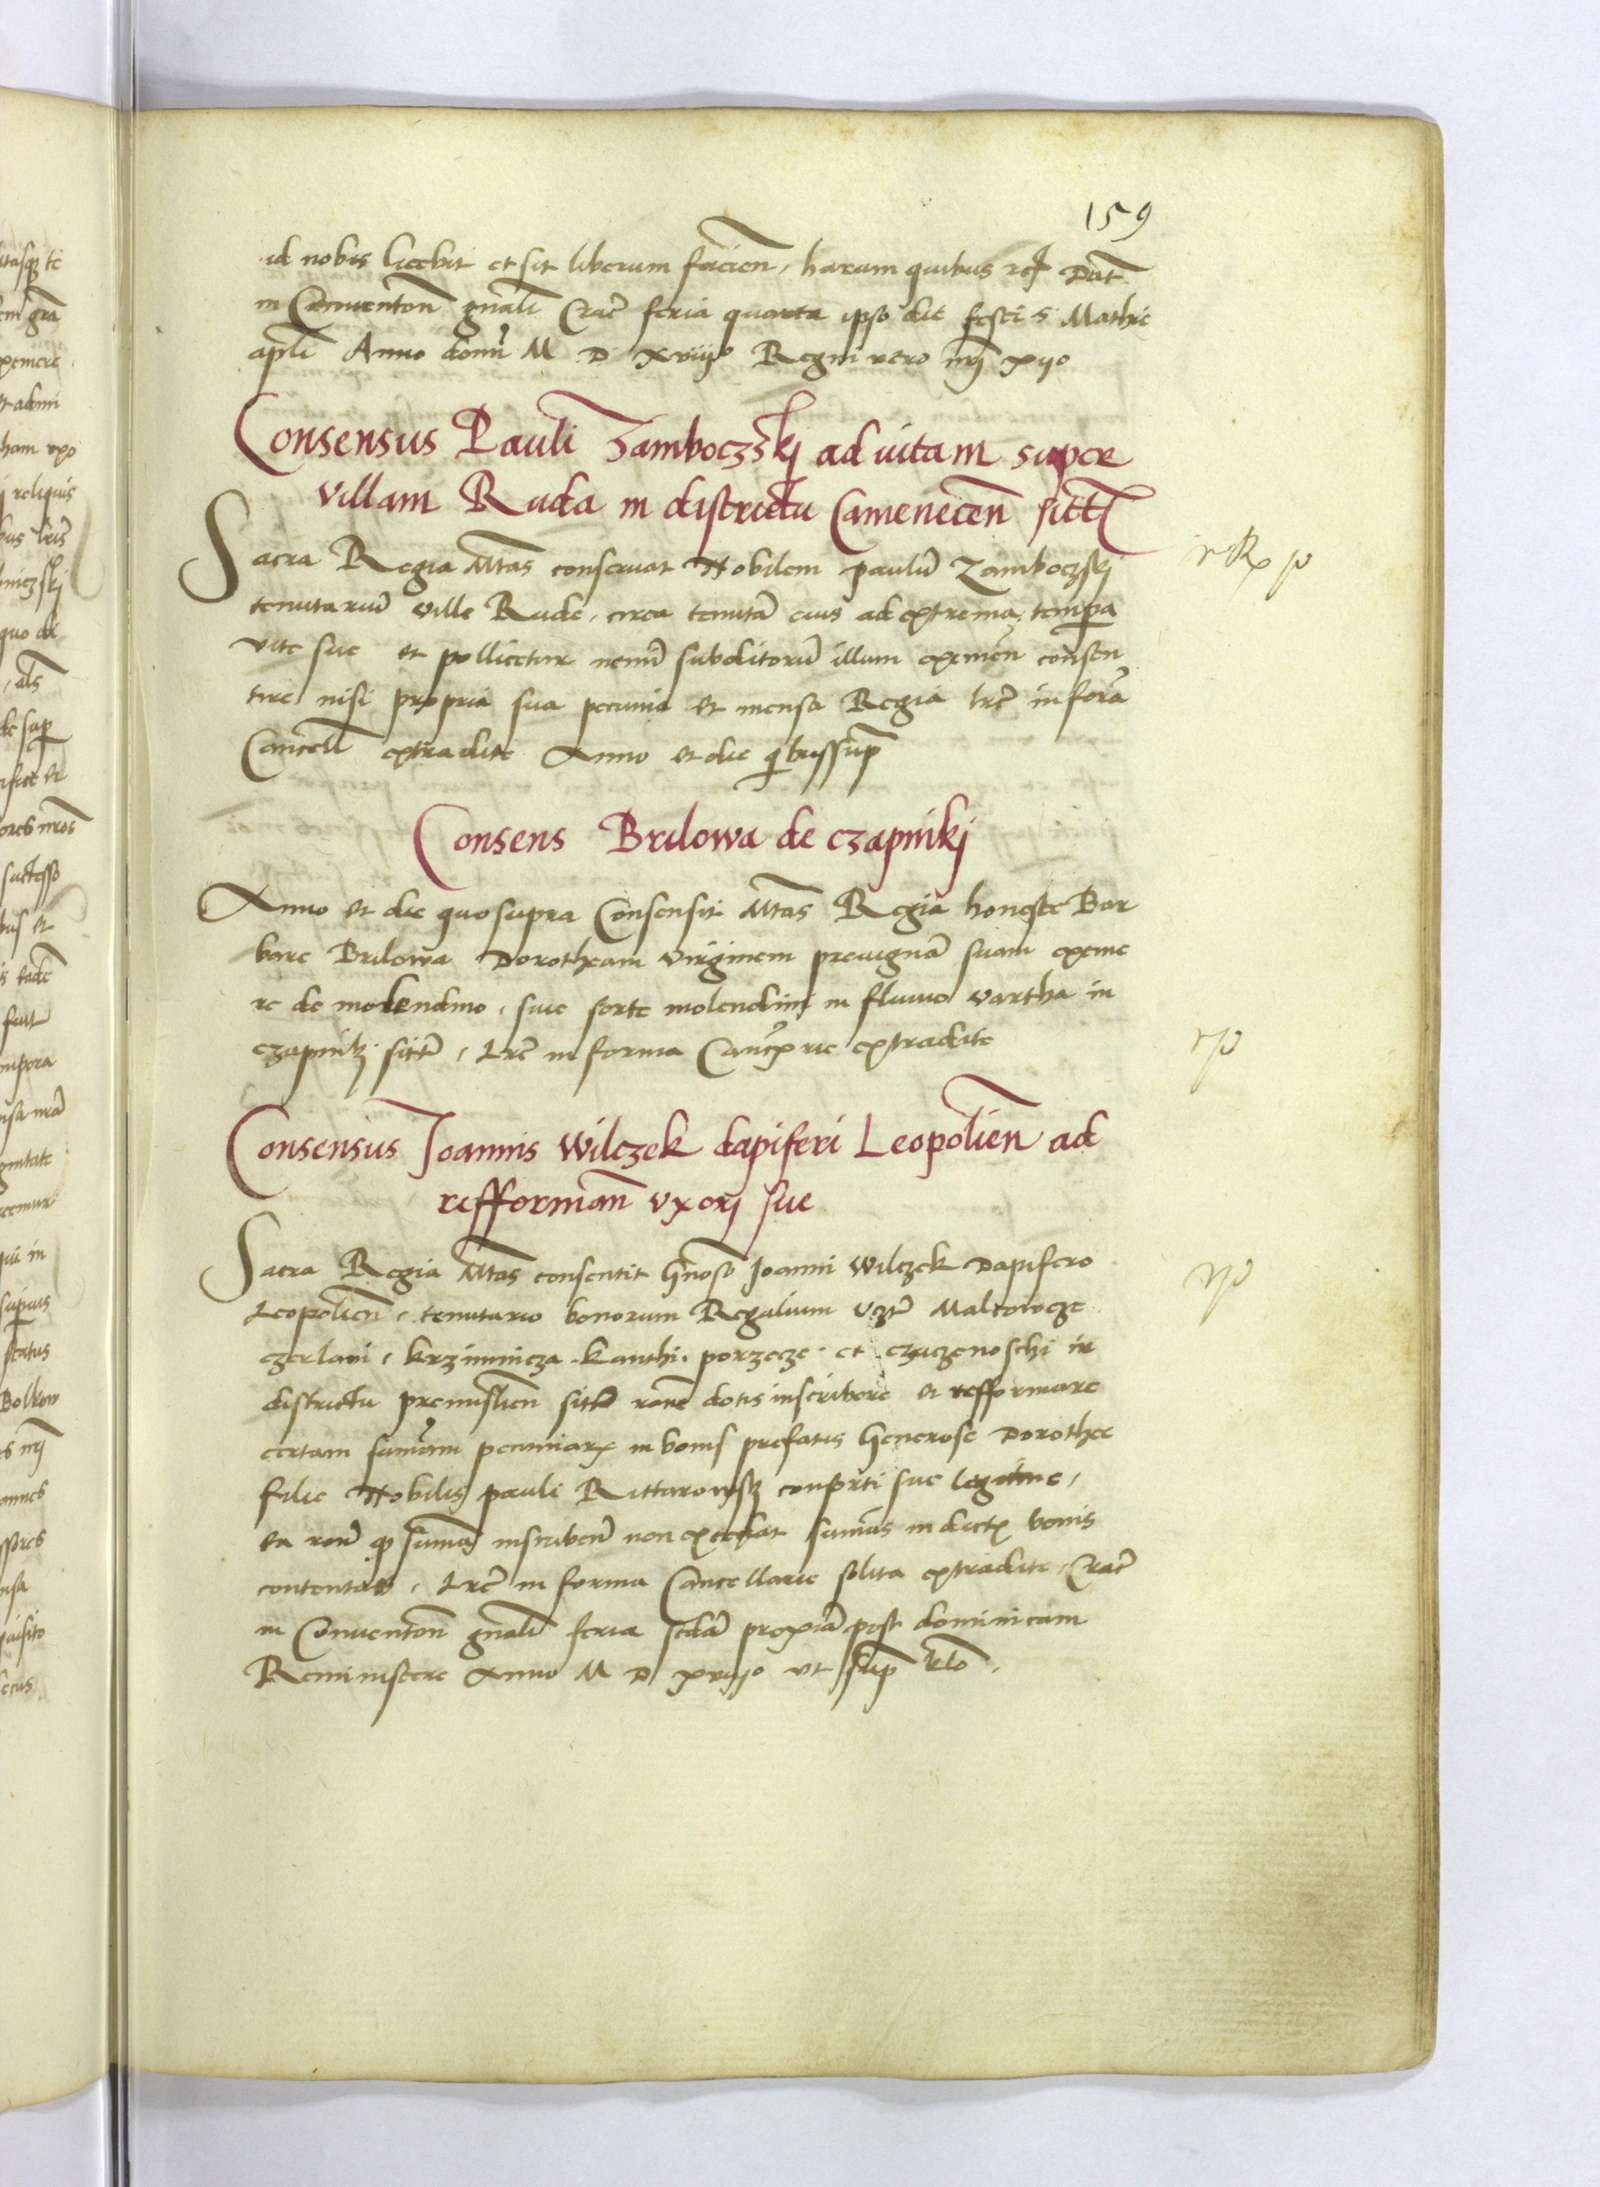 159
id nobis licebit et sit liberum facien̄, harum quibus rc̄ Dat̄
in Conventon̄ gn̄ali Crac̄ feria quarta ipso die festi s Mathie
apl̄i Anno domī M D xviiijo Regni vero nrī xijo
Consensus Pauli Zamboczskj ad vitam super
villam Ruda in districtu Camenecen̄ sitt̄
Sacra Regia Mt̄as conservat Nobilem paulū Zamboczskj
tenutariū ville Rude, circa tenutā eius ad extrema tempa
vite sue et pollicetur nemī subditorū illum eximen̄ consen
tire nisi propria sua pecunia et mensa Regia lrē in forā
Cancell̄ extradite Anno et die qībussup̄
Consens Brilowa de czapnikj
Anno et die quo supra Consensit Mt̄as Regia honeste Bar
bare Brilowa Dorotheam virginem prevignā suam exime
re de molendino, sive sorte molendini in fluvio vartha in
sitt̄, Lrē in forma extradite
Consensus Joannis Wilczek dapiferi Leopolien̄ ad
refforman̄ vxorj sue
Sacra Regia Mt̄as consentit Gn̄oso Joanni Wilczek Dapifero
Leopolien̄, tenutario bonorum Regalium vzt̄
czerlani, krzimnicza. kanthi. porzecze. et in
districtu premislien̄ sitt̄ ronē dotis inscribere et refformare
certam sum̄am pecuniarx in bonis prefatis Generose Dorothee
filie Nobilis pauli consorti sue legitime,
ea ronē qp sum̄a inscriben̄ non excedat sum̄as in dictx bonis
contentas, Lrē in forma Cancellarie solita extradite, Crac̄
in Conventon̄ gn̄ali feria scdā proxīa post dominicam
Reminiscere Anno M D xviijo vt sup̄